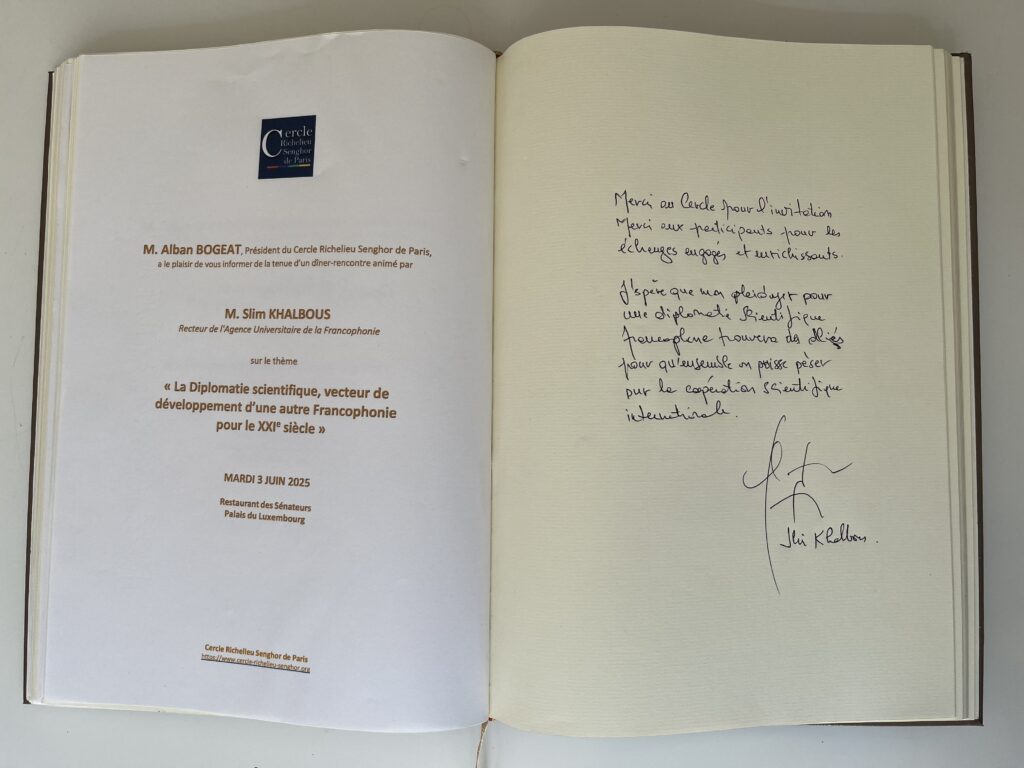 Cercle
Richelieu
Senghor
de Paris
M. Alban BOGEAT, Président du Cercle Richelieu Senghor de Paris,
a le plaisir de vous informer de la tenue d'un dîner-rencontre animé par
M. Slim KHALBOUS
Recteur de l'Agence Universitaire de la Francophonie
sur le thème
« La Diplomatie scientifique, vecteur de
développement d'une autre Francophonie
pour le XXIe siècle »
MARDI 3 JUIN 2025
Restaurant des Sénateurs
Palais du Luxembourg
Cercle Richelieu Senghor de Paris
https://www.cercle-richelieu-senghor.org
Merci au Cercle pour l'invitation
Merci aux participants pour les
échanges engagés et enrichissants.
J'espère que mon plaidoyer pour
une diplomatie scientifique
francophone trouvera des alliés
pour qu'ensemble on puisse pèser
sur la coopération scientifique
internationale.
Slim Khalbous.